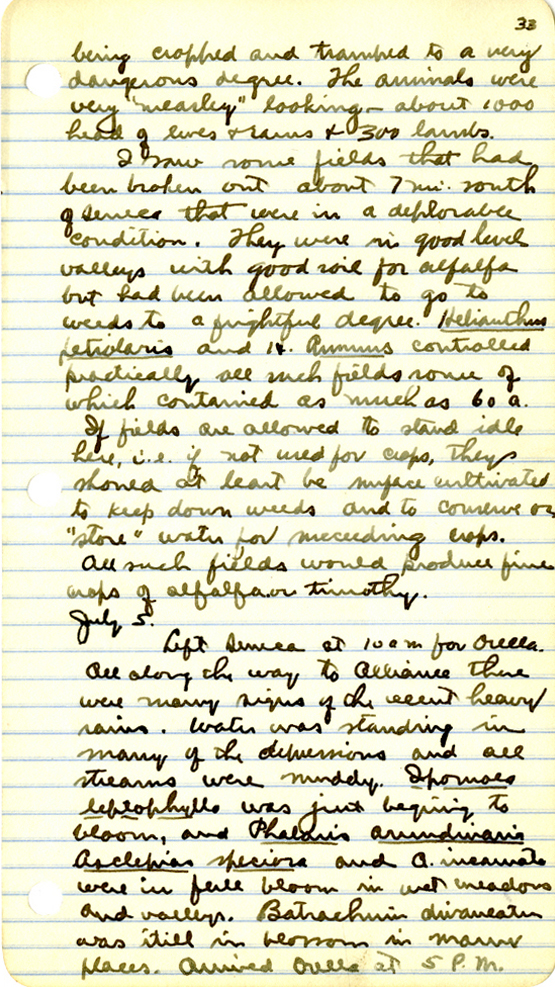 33
being cropped and tramped to a very
dangerous degree. The animals were
very "measley" looking – about 1000
head of ewes & rams & 300 lambs.
I saw some fields that had
been broken out about 7 mi. south
of Seneca that were in a deplorable
condition. They were in good level
valleys with good soil for alfalfa
but had been allowed to go to
weeds to a frightful degree. Helianthus
petiolaris and H. annuus controlled
practically all such fields, some of
which contained as much as 60 a.
If fields are allowed to stand idle
here, i.e. if not used for crops, they
should at least be surface cultivated
to keep down weeds and to conserve or
"store" water for succeeding crops.
All such fields would produce fine
crops of alfalfa or timothy.
July 5.
Left Seneca at 10 am for Orella.
All along the way to Alliance there
were many signs of the recent heavy
rains. Water was standing in
many of the depressions and all
streams were muddy. Ipomoea
leptophylla was just begining to
bloom, and Phalaris arundinacea
Asclepias speciosa and A. incarnata
were in full bloom in wet meadows
and valleys. Batrachium divaricatum
was still in blossom in many
places. Arrived Orella at 5 P.M.